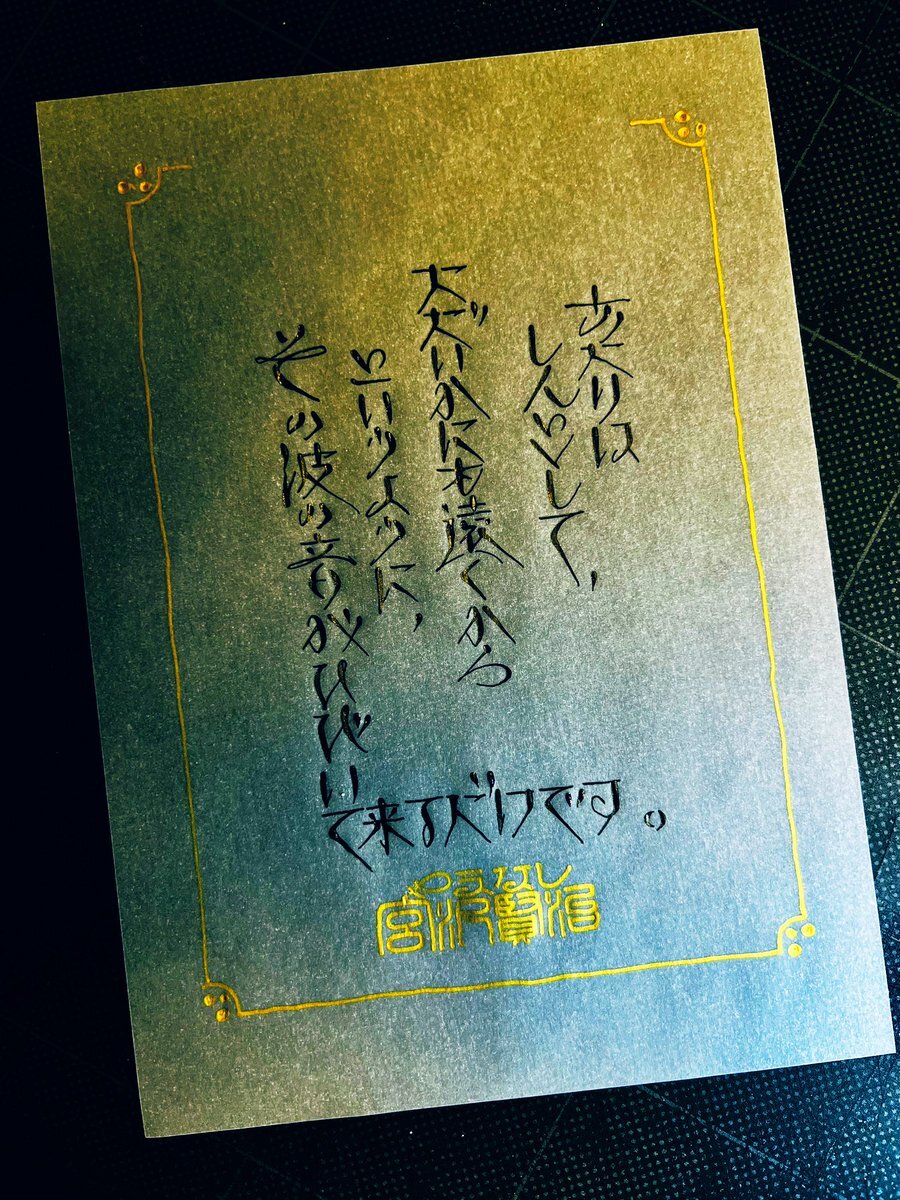 あたりは
しんとして、
ただいかにも遠くから
というように、
その波の音がひびい
て来るだけです。
やまなし
宮沢賢治